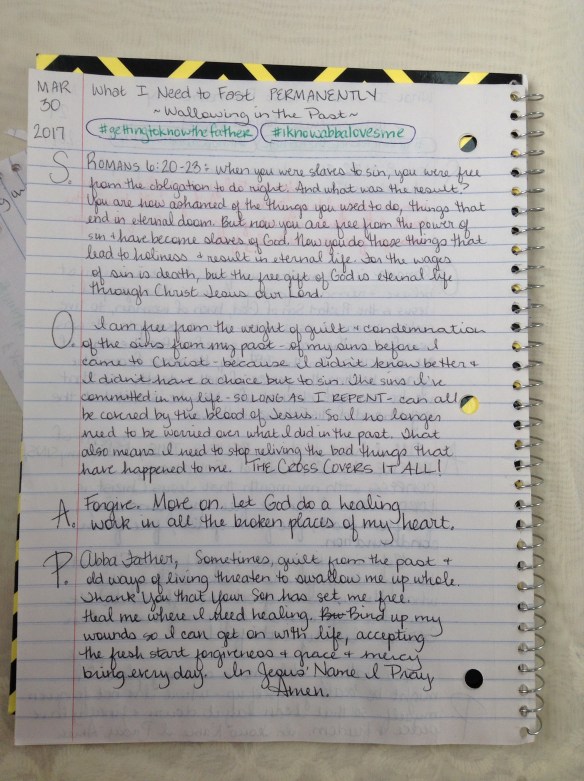 MAR
30
2017
What I Need to Fast PERMANENTLY
~Wallowing in the Past~
#gettingtoknowthefather #iknowabbalovesme
S. ROMANS 6:20-23: When you were slaves to sin, you were free
from the obligation to do right. And what was the result?
You are now ashamed of the things you used to do, things that
end in eternal doom. But now you are free from the power of
sin + have become slaves of God. Now you do those things that
lead to holiness + result in eternal life. For the wages
of sin is death, but the free gift of God is eternal life
through Christ Jesus our Lord.
O. I am free from the weight of guilt + condemnation
of the sins from my past - of my sins before I
came to Christ - because I didn't know better +
I didn't have a choice but to sin. The sins I've
committed in my life - SO LONG AS I REPENT - can all
be covered by the blood of Jesus. So I no longer
need to be worried over what I did in the past. That
also means I need to stop reliving the bad things that
have happened to me. THE CROSS COVERS IT ALL!
A. Forgive. Move on. Let God do a healing
work in all the broken places of my heart.
P. Abba Father, Sometimes, guilt from the past +
old ways of living threaten to swallow me up whole.
Thank You that Your Son has set me free.
Heal me where I need healing. But Bind up my
wounds so I can get on with life, accepting
the fresh start forgiveness + grace + mercy
bring every day. In Jesus' Name I Pray
Amen.